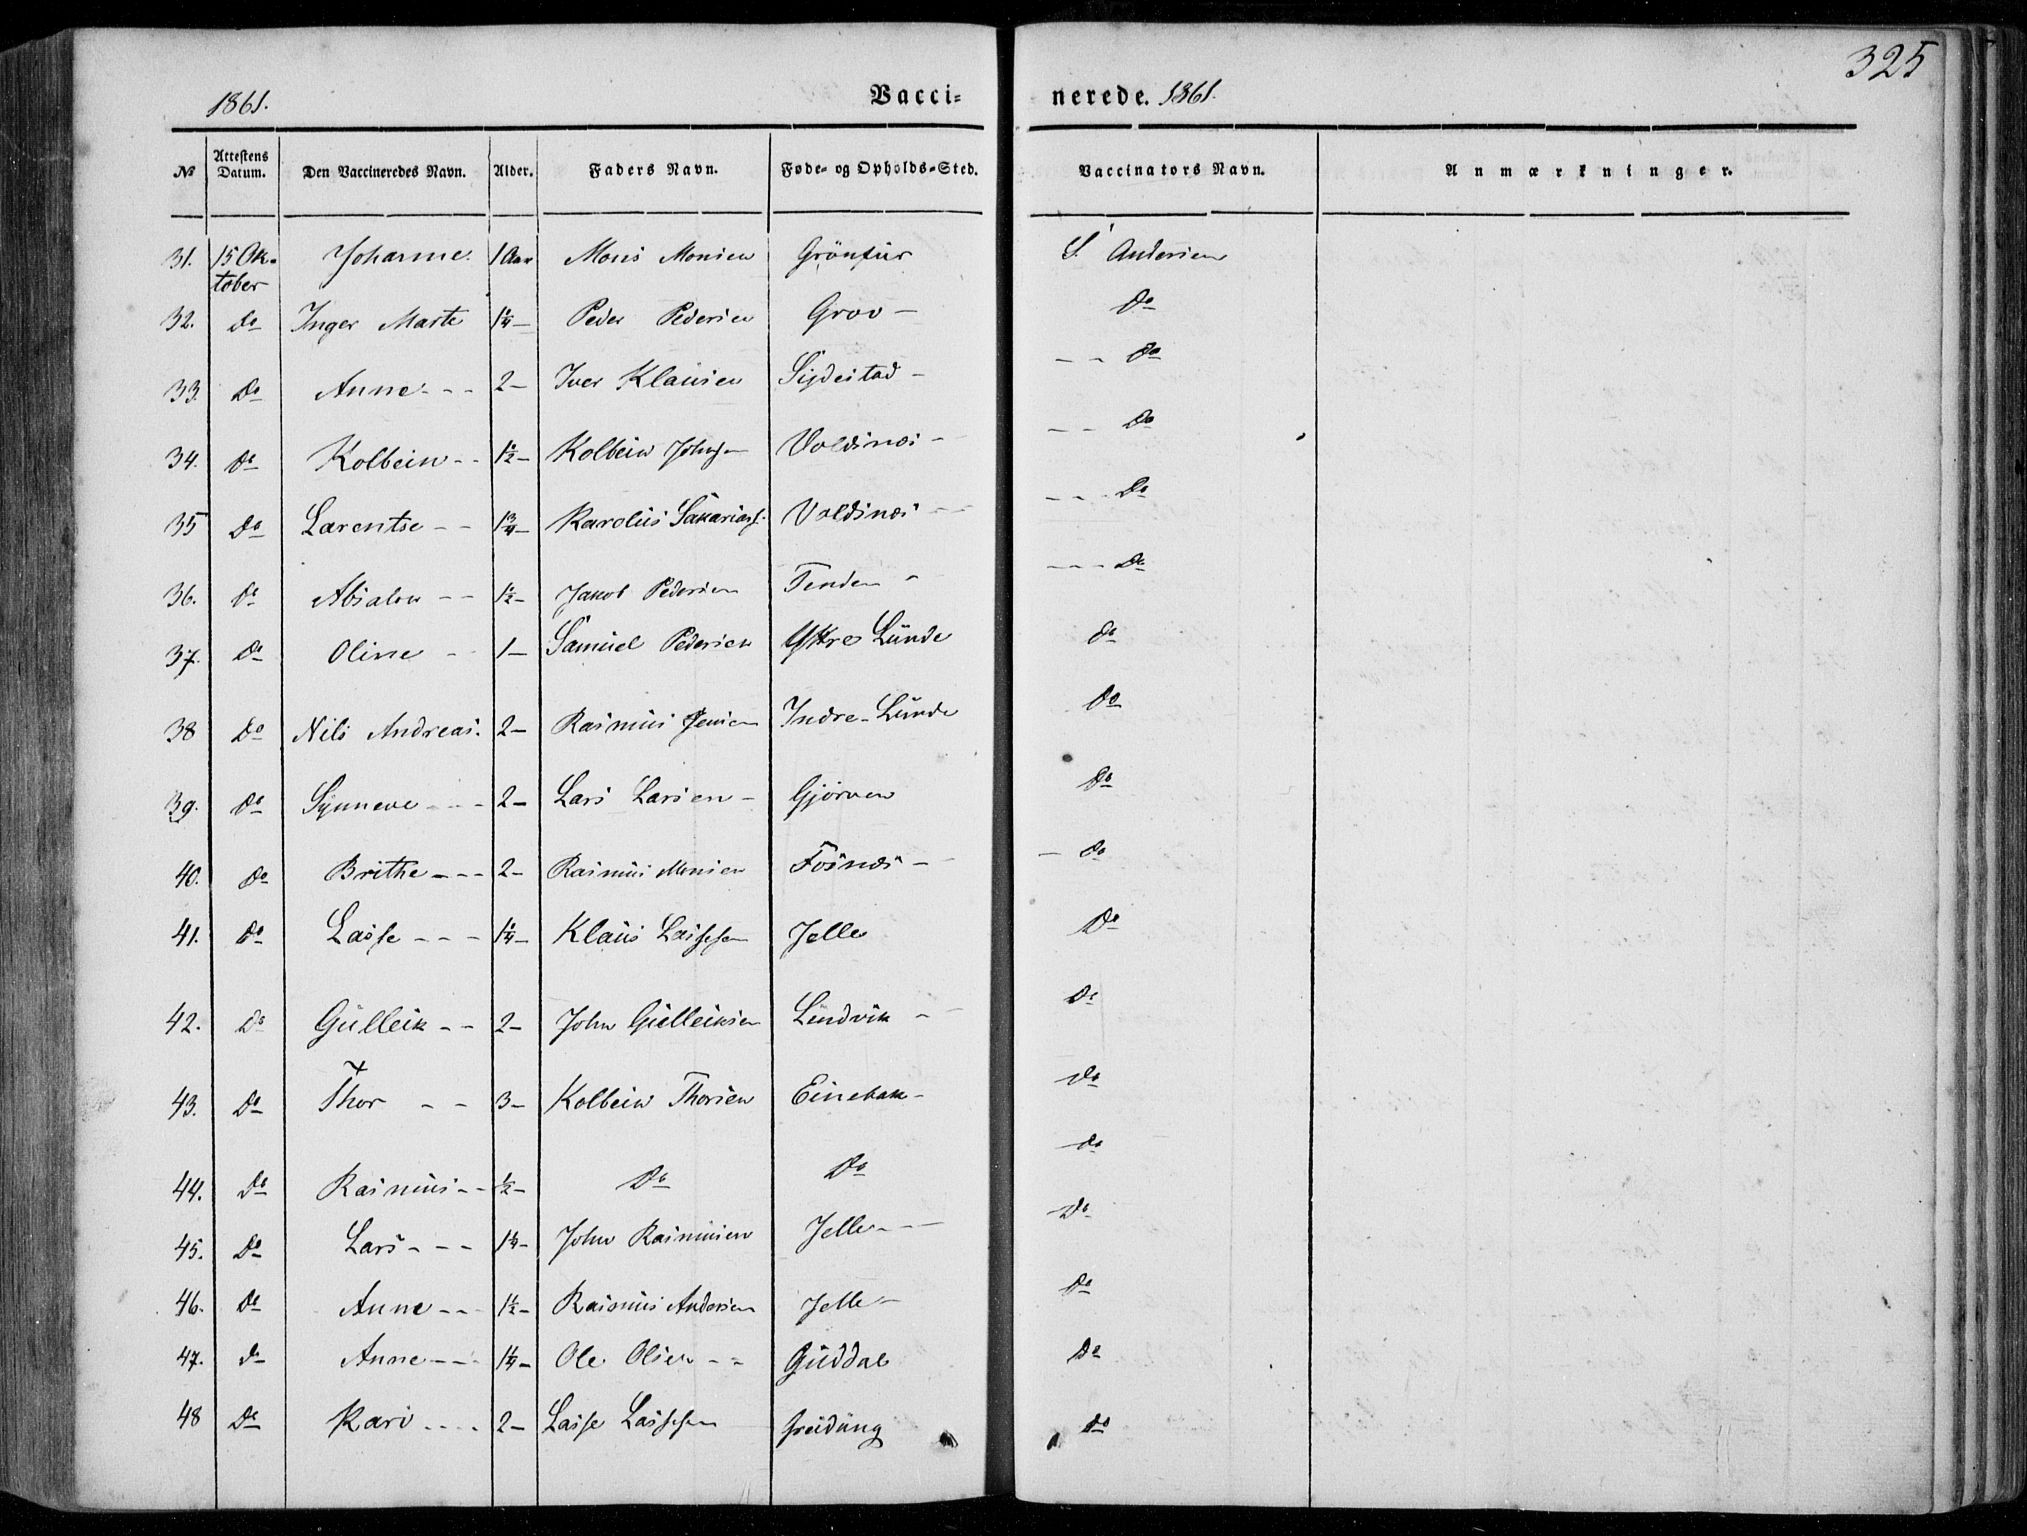 325
1861. Vacci= nerede. 1861.
No Attestens Datum. Den Vaccineredes Navn. Alder. Faders Navn. Føde- og Opholds-Sted. Vaccinators Navn. Anmærkninger.
31. 15 Ok- Johanne 1 Aar Mons Monsen Grönfur S. Andersen
tober
32. Do Inger Marte 1 1/4 — Peder Pedersen Grov — Do
33. Do Anne - - - 2 — Iver Klausen Sigdestad - - - Do
34. Do Kolbein - - 1 1/2 — Kolbein Johnsen Voldsnæs - - - Do
35 Do Larentse - - 1 3/4 — Karolus Sakariass. Voldsnæs - - - Do
36. Do Absalon - - 1 1/2 — Jakob Pedersen Tenden - - - - Do
37. Do Oline - 1 — Samuel Pedersen Ytre Lünde Do
38 Do Nils Andreas. 2 — Rasmus Jensen Indre - Lünde Do
39. Do Synneve - - - 2 — Lars Larsen - Gjörven Do
40. Do Brithe - - - 2 - Rasmus Monsen Fosnæs - - Do
41. Do Lasse - - - 1 1/4 — Klaus Lassesen Jelle Do
42. Do Gülleik - - 2 - John Gülleiksen Lündvik - Do
43. Do Thor - - 3 - Kolbein Thorsen Einebak - Do
44. Do Rasmus - - 1/2 - Do Do Do
45. Do Lars - - - 1 1/4 - John Rasmusen Jelle - - Do
46. Do Anne - - 1 1/2 - Rasmus Andersen Jelle - Do
47. Do Anne - - - 1 1/4 - Ole Olsen - - Güddal Do
48 Do Kari - - - - 2 - Lasse Lassesen Do